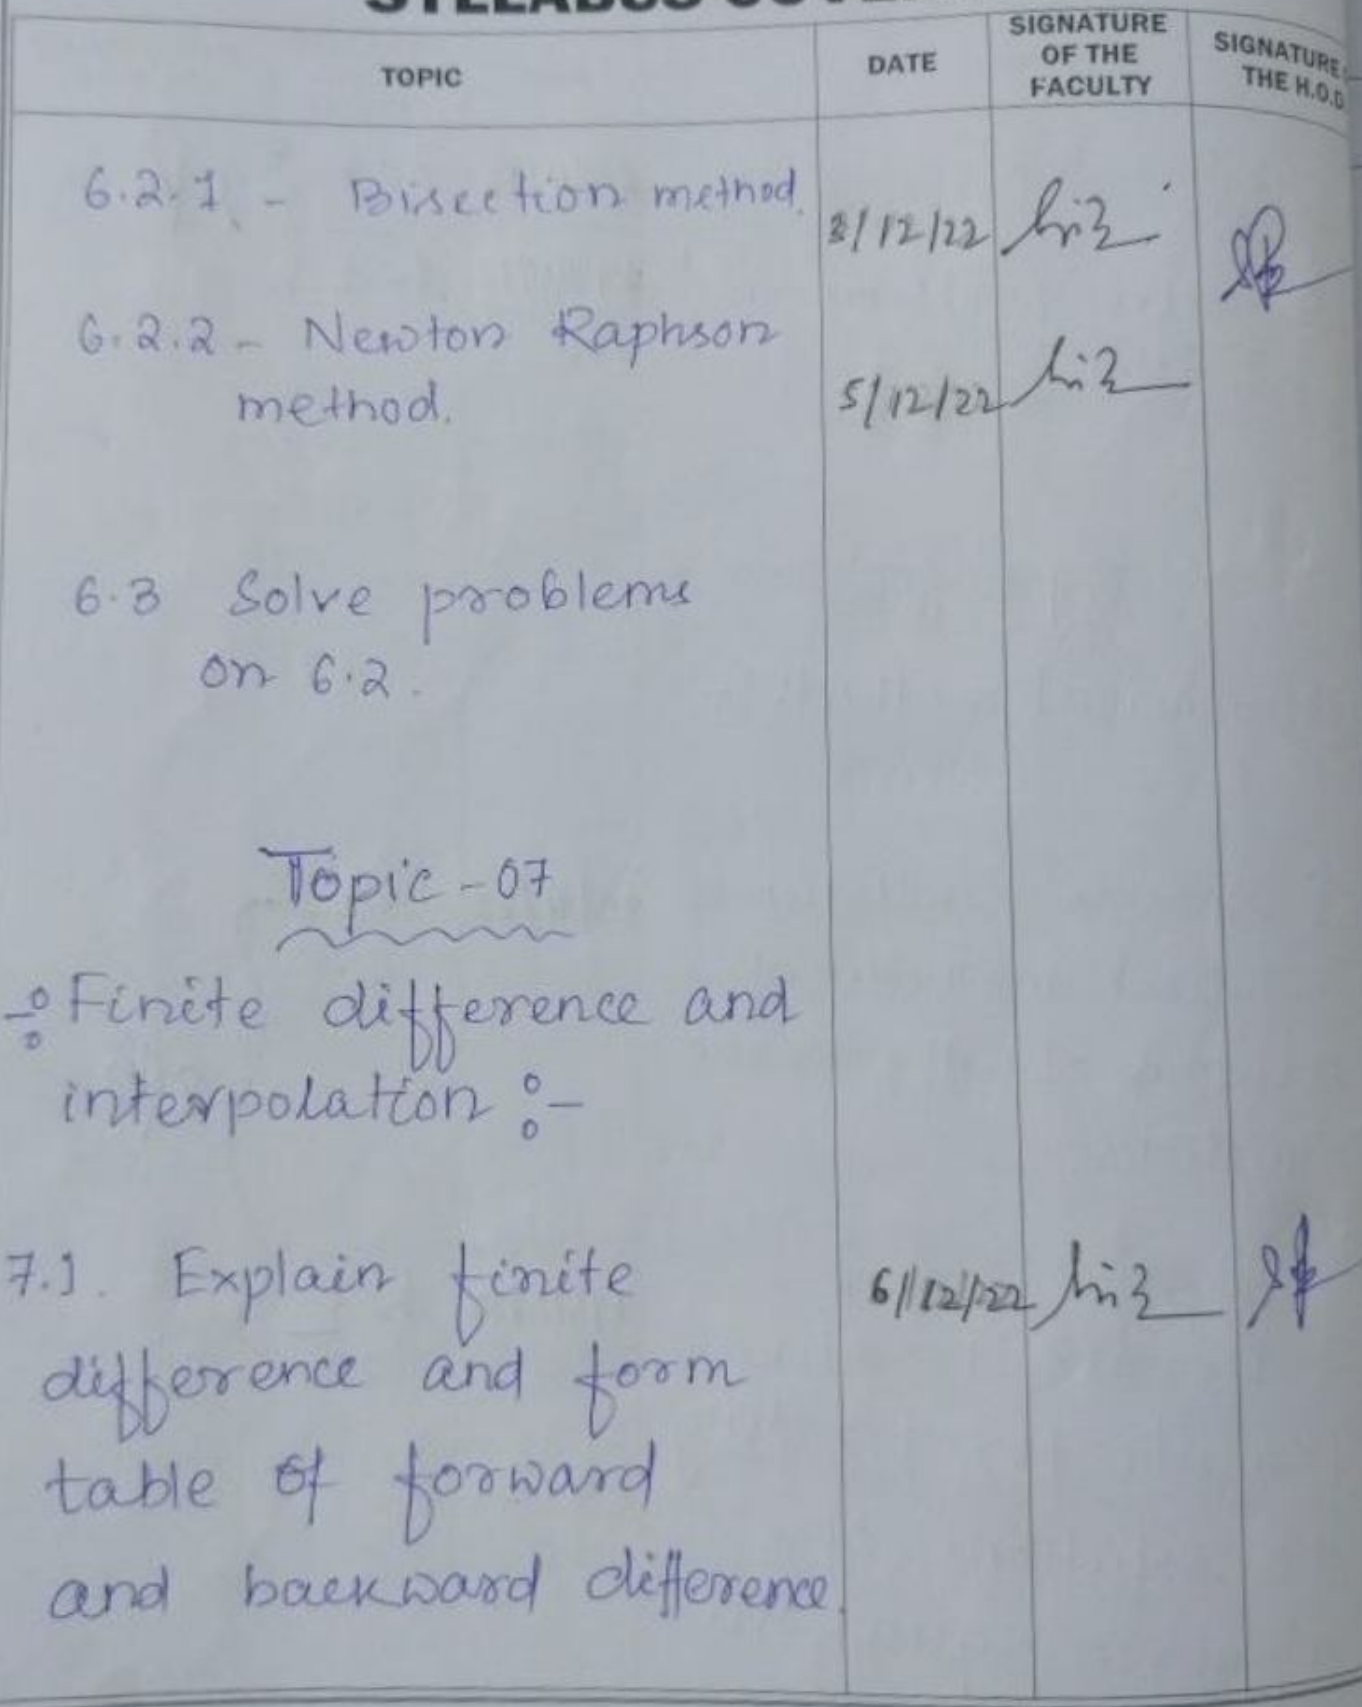 TOPIC
DATE
SIGNATURE
OF THE
FACULTY
SIGNATURE
THE H.O.D
6.2.1 - Bisection method.
2/12/22
6.2.2 - Newton Raphson
method.
5/12/22
6.3 Solve problems
on 6.2.
Topic - 07
Finite difference and
interpolation :-
7.1. Explain finite
6/12/22
difference and form
table of forward
and backward difference.